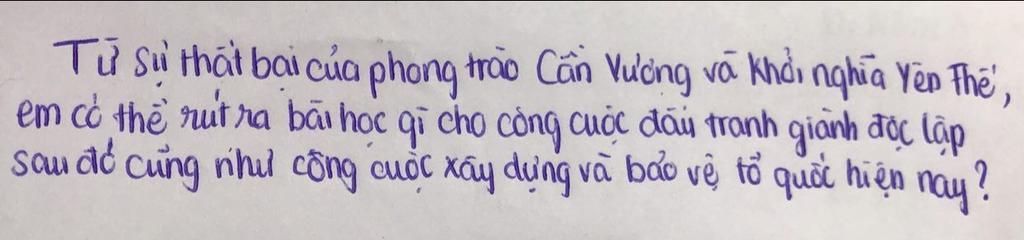 Từ sự thất bại của phong trào Cần Vương và khởi nghĩa Yên Thế,
em có thể rút ra bài học gì cho công cuộc đấu tranh giành độc lập
sau đó cũng như công cuộc xây dựng và bảo vệ tổ quốc hiện nay?